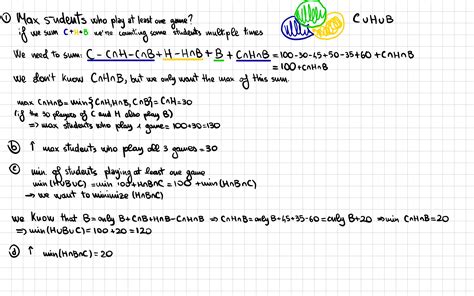 ① Max students who play at least one game? CUHUB
if we sum C+H+B we're counting some students multiple times
We need to sum: C - C∩H - C∩B + H - H∩B + B + C∩H∩B = 100-30-45+50-35+60 + C∩H∩B
= 100 + C∩H∩B
We don't know C∩H∩B, but we only want the max of this sum.
max C∩H∩B = min{C∩H, H∩B, C∩B} = C∩H = 30
(if the 30 players of C and H also play B)
=> max students who play 1 game = 100+30=130
ⓑ ↑ max students who play all 3 games = 30
ⓒ min. of students playing at least one game
min(HUBUC) = min 100+H∩B∩C = 100 + min(H∩B∩C)
→ we want to minimize (H∩B∩C)
We know that B = only B + C∩B + H∩B - C∩H∩B => C∩H∩B = only B + 45 + 35 - 60 = only B + 20 => min C∩H∩B = 20
=> min(HUBUC) = 100 + 20 = 120
ⓓ ↑ min(H∩B∩C) = 20